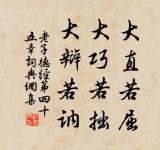 大直若屈
大巧若拙
大辯若訥
老子德經第四十
五章詞典網集